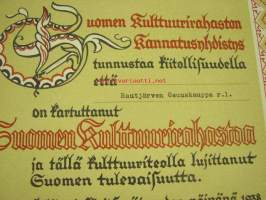 Suomen Kulttuurirahaston
Kannatusyhdistys
tunnustaa kiitollisuudella
että
Rautjärven Osuuskauppa r.l.
on kartuttanut
Suomen Kulttuurirahastoa
ja tällä kulttuuriteolla lujittanut
Suomen tulevaisuutta.
päivänä 1938